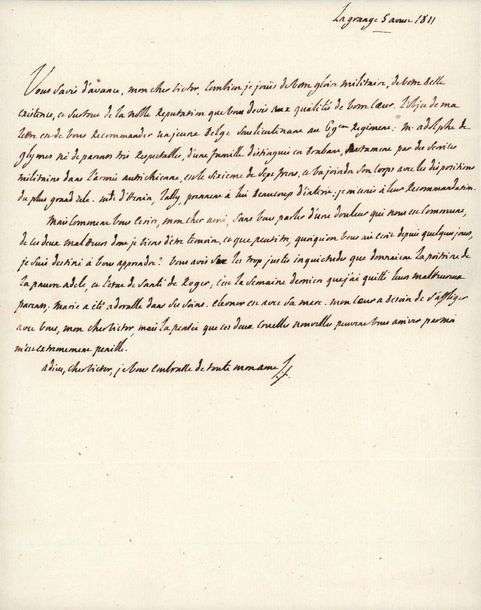 Lagrange 5 avril 1811
Vous savés d'avance, mon cher victor, combien je jouis de votre gloire militaire, de votre belle
existence, et surtout de la noble reputation que vous devés aux qualités de votre cœur. l'objet de ma
lettre est de vous recommander un jeune belge souslieutenant au regiment: m. adolphe de
glymes né de parents très respectables, d'une famille distinguée en Brabant, par des services
militaires dans l'armée autrichienne, est le sixieme de sept freres, et va joindre son corps avec les dispositions
du plus grand zele. md. d'henin, Lally, prennent à lui beaucoup d'interest. je m'unis à leur recommandation.
Mais comment vous ecrire, mon cher ami, sans vous parler d'une douleur qui nous est commune,
de ces deux malheurs dont je viens d'être temoin, et que peut être, quoiqu'on vous ait ecrit depuis quelques jours,
je suis destiné à vous apprendre? vous aviés les trop justes inquietudes que donnaient la poitrine de
la pauvre adele, et l'etat de santé de Roger, c'est la semaine derniere que j'ai quitté leurs malheureux
parents, marie a été adorable dans ses soins. eleonor est avec sa mere. mon cœur a besoin de s'affliger
avec vous, mon cher victor, mais la pensée que ces deux cruelles nouvelles peuvent vous arriver par moi
m'est extremement penible.
adieu, cher victor, je vous embrasse de toute mon ame